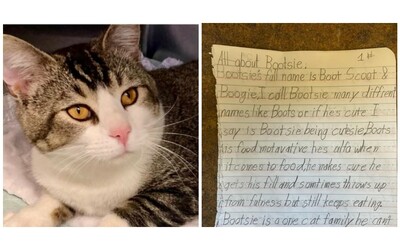 All about Bootsie. 1#
Bootsies full name is Boot Scoot &
Boogie, I call Bootsie many diffrent
names like Boots or if hes cute I
say is Bootsie being cutesie, Boots
is food motavative hes alfa when
it comes to food, he makes sure he
gets his fill and somtimes throws up
from fulness but still keeps eating.
Bootsie is a one cat family, he cant